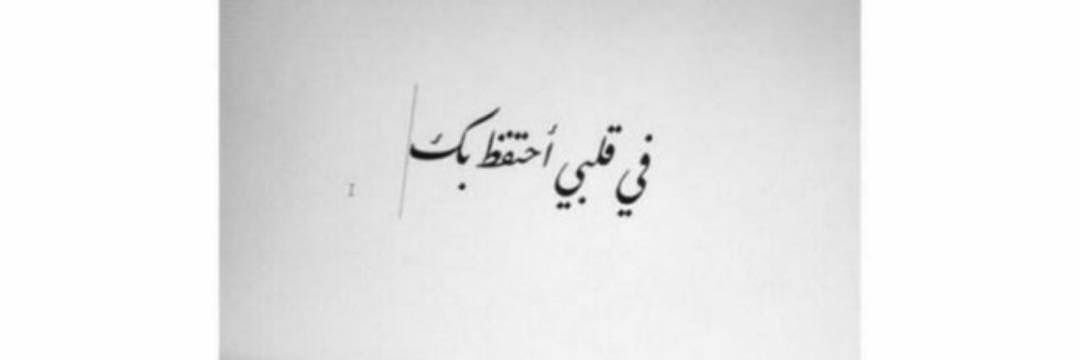 في قلبي أحتفظ بك